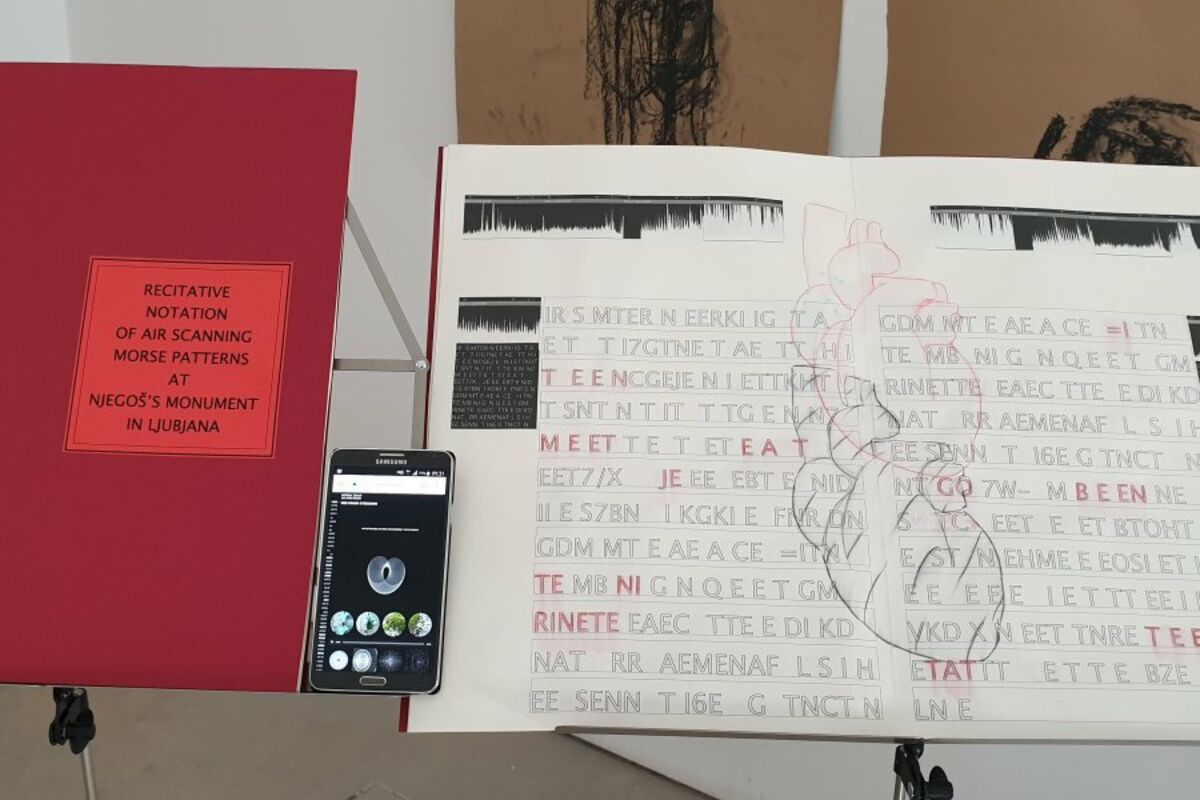 RECITATIVE
NOTATION
OF AIR SCANNING
MORSE PATTERNS
AT
NJEGOŠ'S MONUMENT
IN LJUBJANA
SAMSUNG
IR S MTER N EERKI IG T A
E T T I7GTNE T AE TT H I
T E E NCGEJE N I ETTKHT
T SNT N T IT T TG E N N
M E E T T E T E T E A T
EET7/X JE EE EBT E NID
II E S7BN I KGKI E FNR DN
GDM MT E AE A CE =ITN
TE MB NI G N Q E E T GM
RINETE EAEC TTE E DI KD
NAT RR AEMENAF L S I H
EE SENN T I6E G TNCT N
GDM MT E AE A CE =I TN
TE MB NI G N Q E E T GM
RINETTE EAEC TTE E DI KD
NAT RR AEMENAF L S I H
EE SENN T I6E G TNCT N
NT GO 7W- M B E E N NE
EET E ET BTOHT
E ST N EHME E EOSI ET I
E E E E E I E T TT EE I I
VKD X N EET TNRE T E E
ETATTT E T T E BZE
LN E